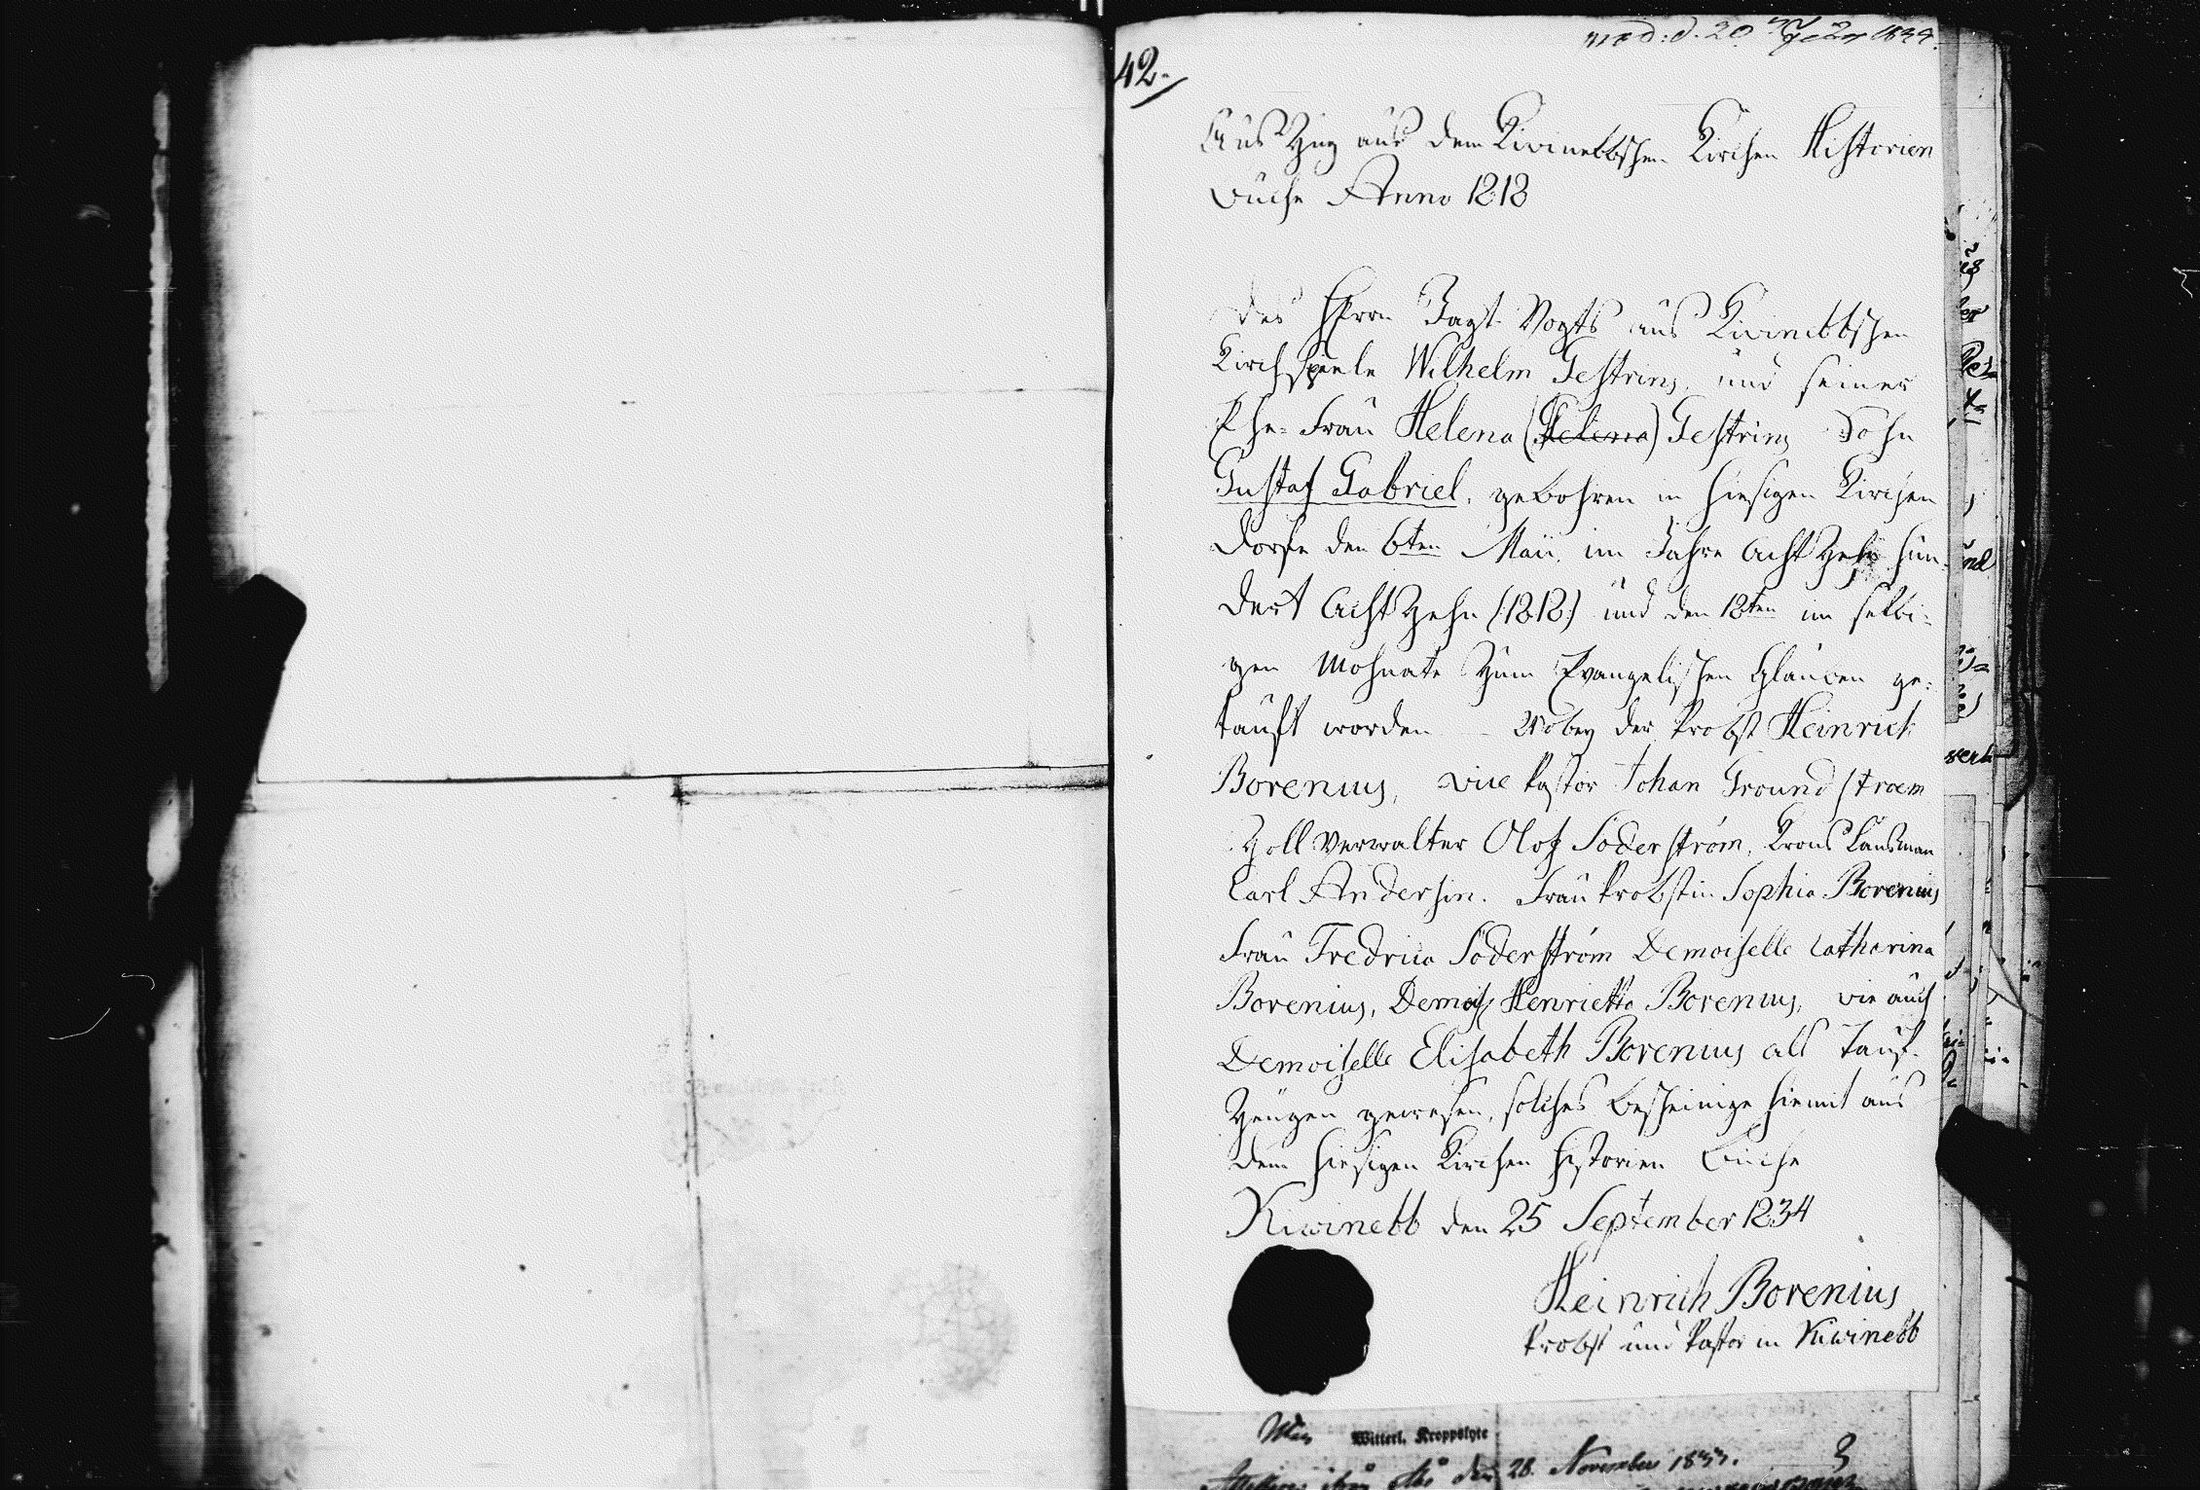 42.
Aus Zug aus dem Kivinebbschen Kirchen Historien
buche Anno 1818
Des Herrn Jagt Vogts aus Kivinebbschen
Kirchspiele Wilhelm Gestrins, und seiner
Ehe=Frau Helena (Helena) Gestrins Sohn
Gustaf Gabriel, gebohren im hiesigen Kirchen
Dorfe den 6ten Maii, im Jahre Acht Zehn hun-
dert Acht Zehn (:1818:) und den 18ten im selbi-
gen Mohnate Zum Evangelischen Glauben ge-
tauft worden – Wobey der Probst Heinrich
Borenius, Vice Pastor Johan Groundstroem
Zoll Verwalter Olof Söderström, Krons Länsman
Carl Andersin. Frau Probstin Sophia Borenius
Frau Fredrica Söderström Demoiselle Catharina
Borenius, Demois. Henrietta Borenius, wie auch
Demoiselle Elisabeth Borenius als Tauf-
Zeugen gewesen, solches bescheinige hiemit aus
dem hiesigen Kirchen historien Buche
Kiwinebb den 25 September 1834
Heinrich Borenius
Probst und Pastor in Kiwinebb
Witterl. Kroppslyte
den 28. November 1833.